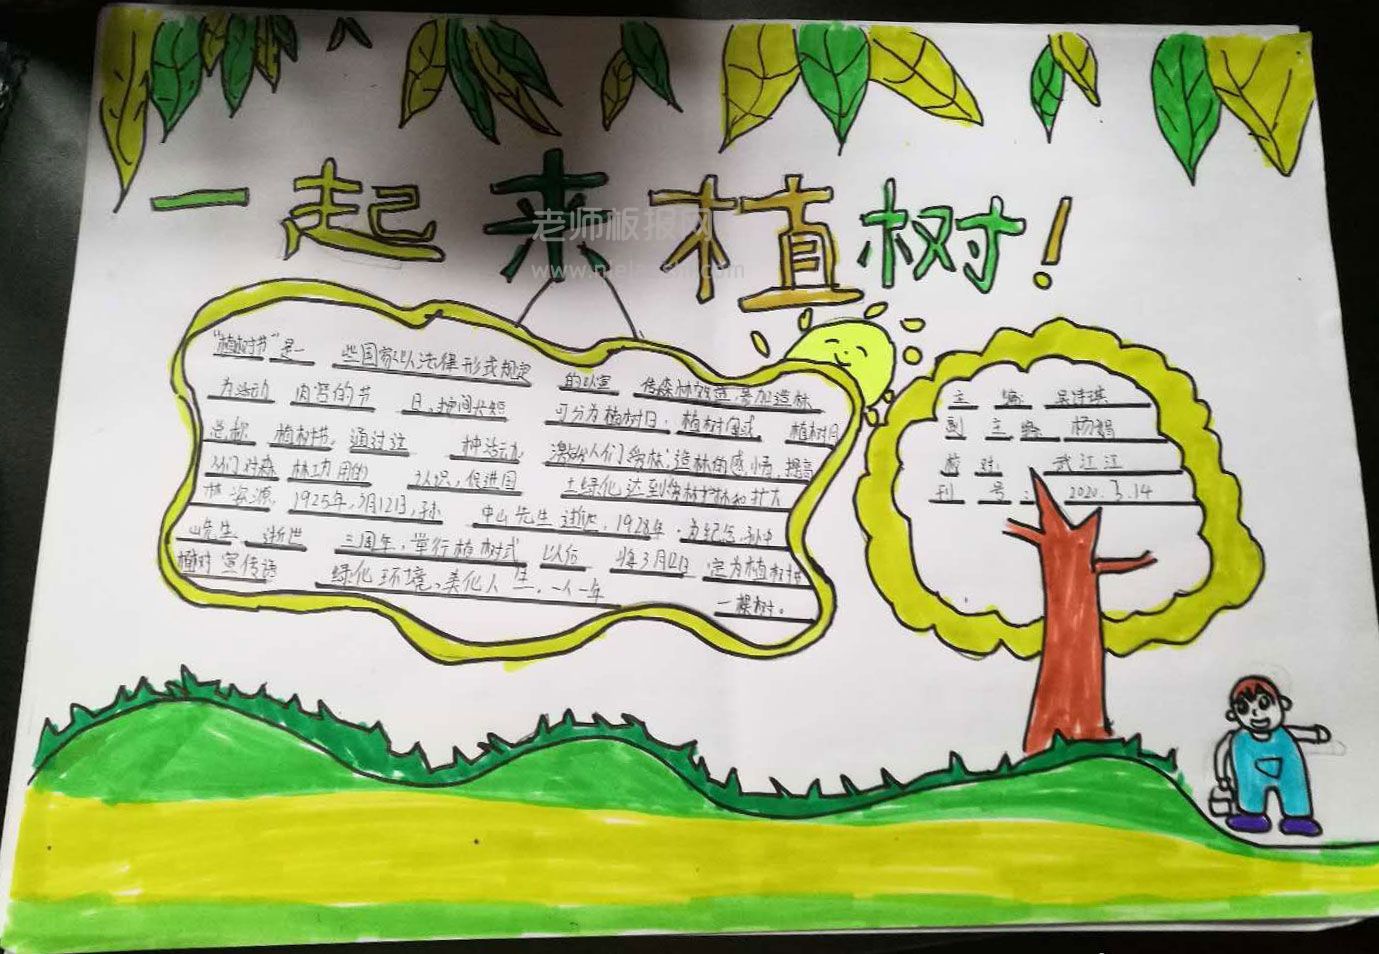 一起来植树！
老师板报网
"植树节"是一 些国家以法律形式规定 的以宣 传森林效益,并加造林
为活动 内容的节 日,按时间长短 可分为植树日,植树周或 植树月
总称 植树节,通过这 种活动 激发人们爱林;造林的感情,提高
人们对森 林功用的 认识,促进国 土绿化达到爱林护林和扩大
林资源,1925年,3月12日,孙 中山先生逝世,1928年,为纪念,孙中
山先生,逝世 三周年,举行植树式 以后 将3月12日 定为植树节
植树宣传语 绿化环境、美化人生,一人一年 一棵树。
主 编:
副 主编 杨娟
校 对: 武江江
刊 号: 2020.3.14